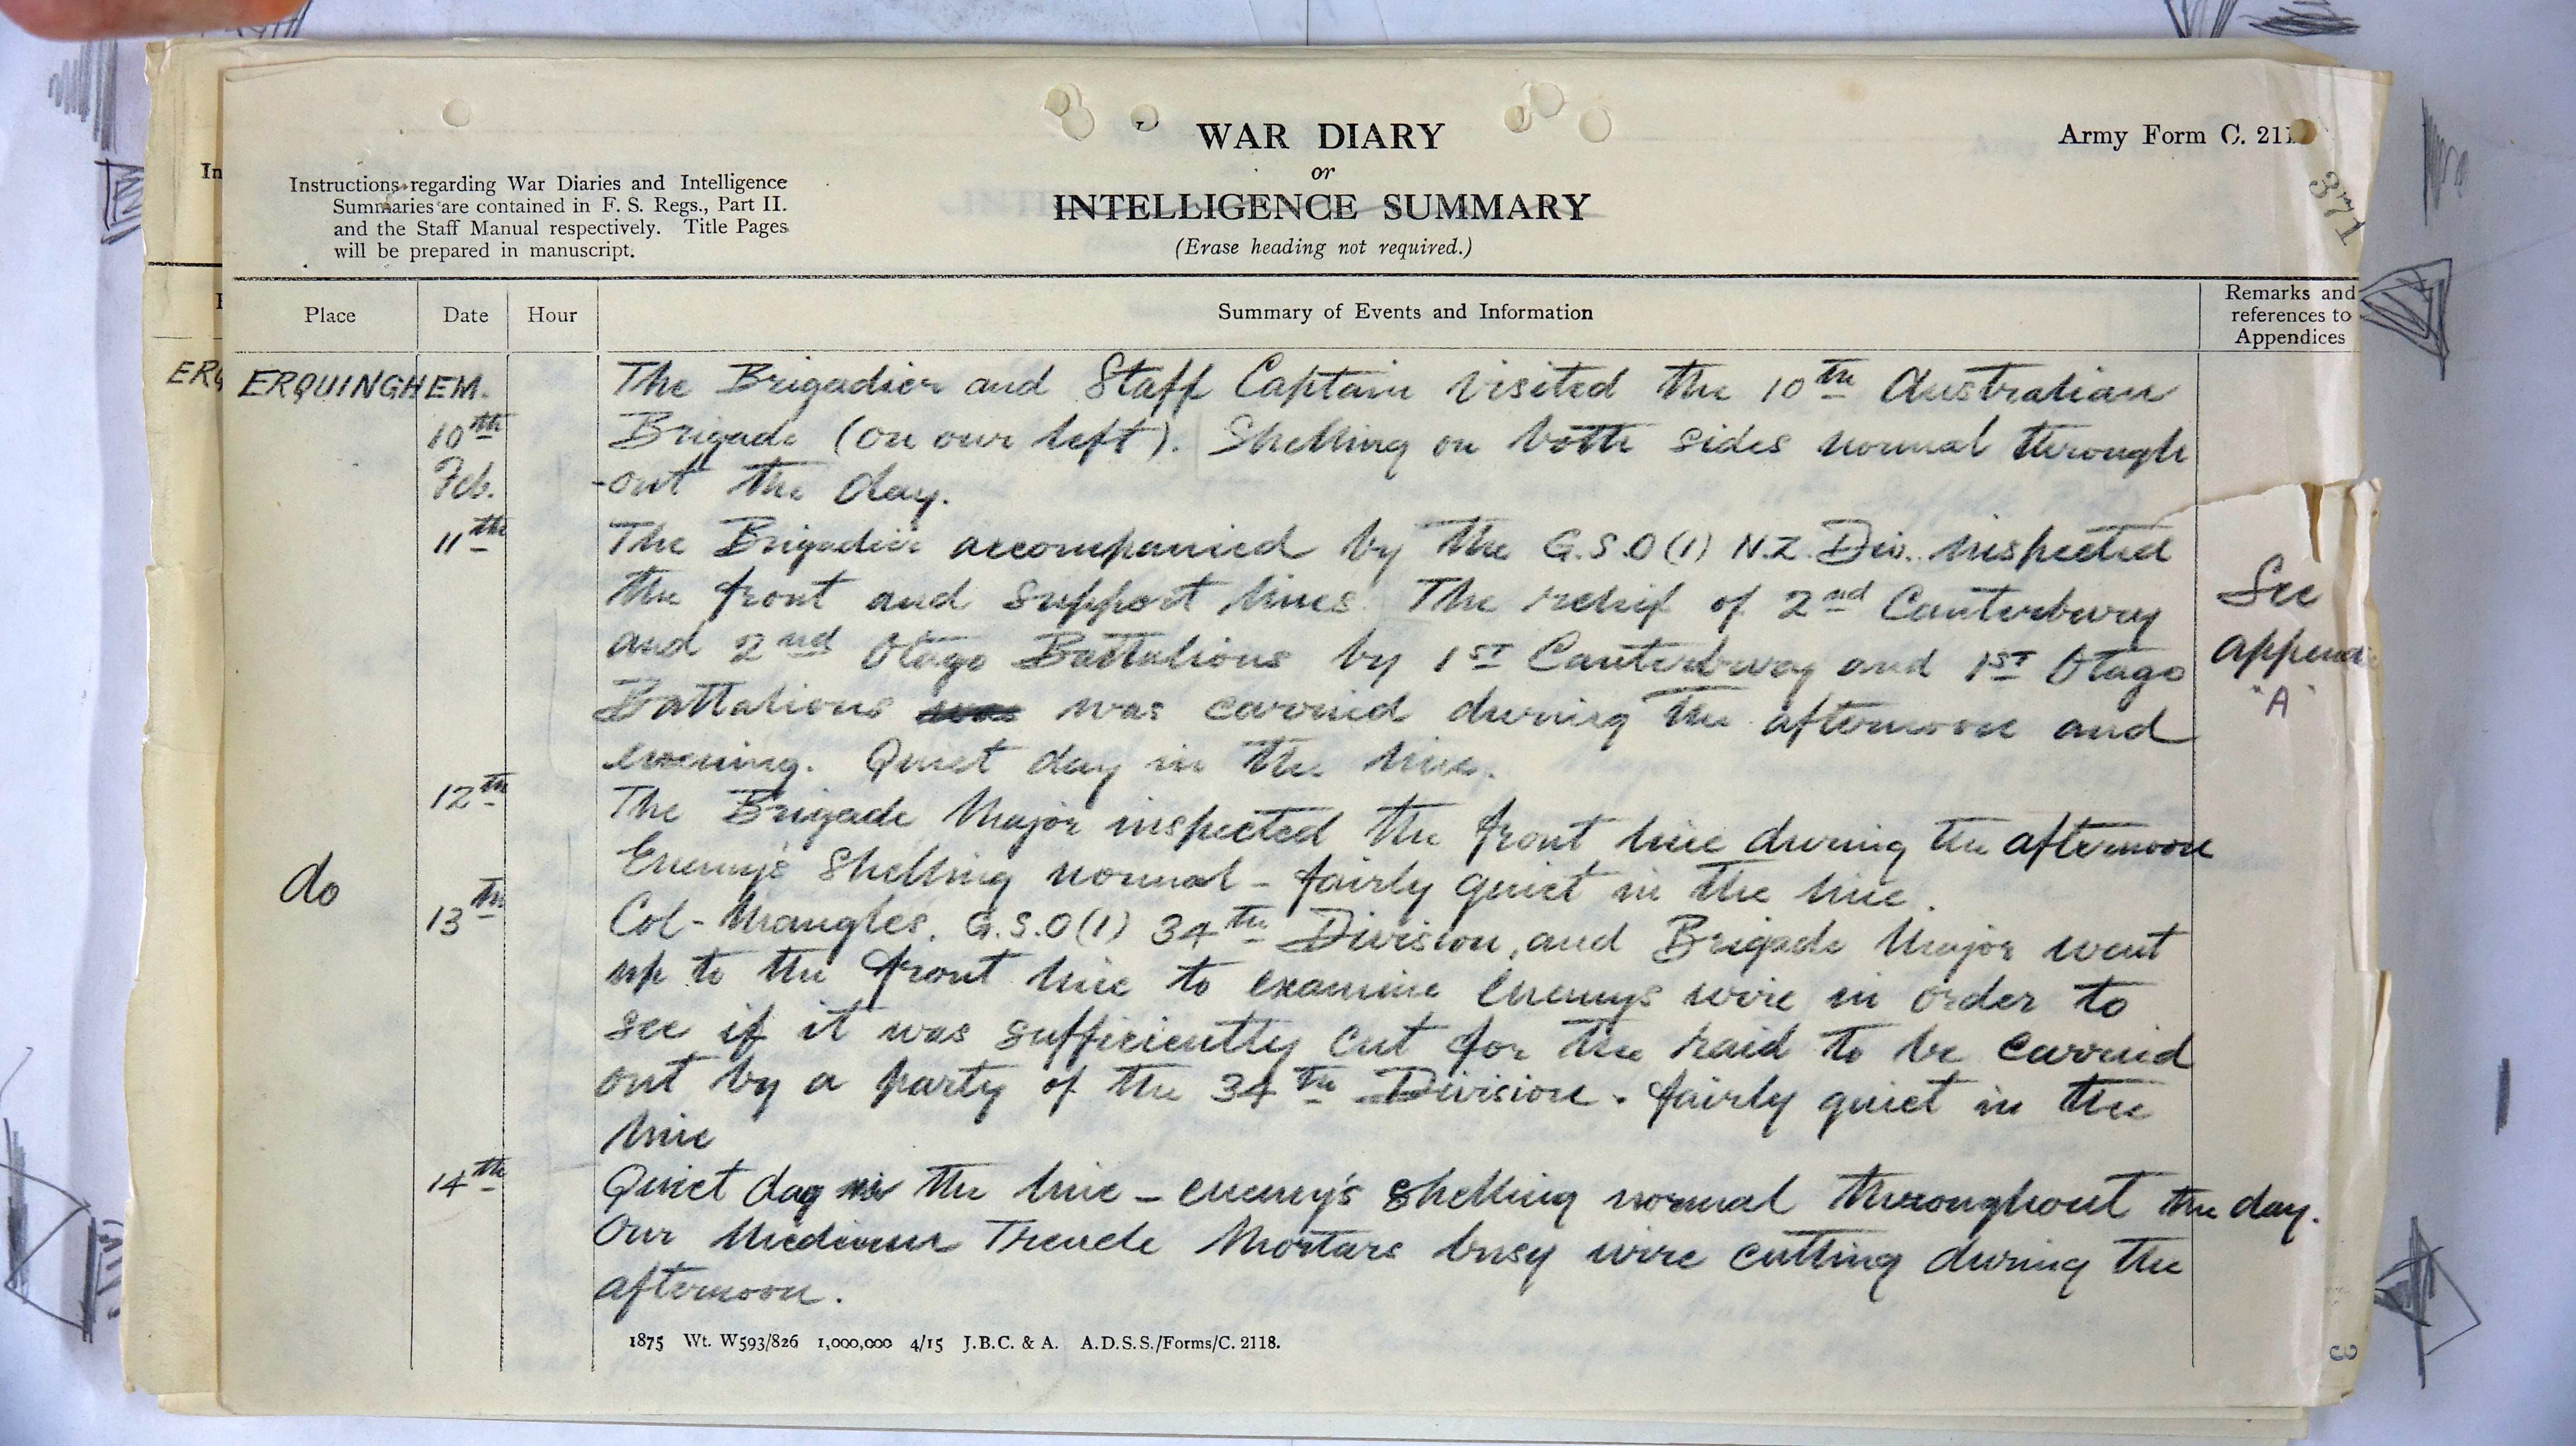 WAR DIARY
or
INTELLIGENCE SUMMARY
(Erase heading not required.)
Army Form C. 211
371
Instructions regarding War Diaries and Intelligence
Summaries are contained in F. S. Regs., Part II.
and the Staff Manual respectively. Title Pages
will be prepared in manuscript.
In
Place Date Hour Summary of Events and Information Remarks and
references to
Appendices
ERQ
ERQUINGHEM. The Brigadier and Staff Captain visited the 10th Australian
10th Brigade (on our left). Shelling on both sides normal through
Feb. -out the day.
11th The Brigadier accompanied by the G.S.O(1) N.Z. Div. inspected
the front and support lines. The relief of 2nd Canterbury See
and 2nd Otago Battalions by 1st Canterbury and 1st Otago append
Battalions was was carried during the afternoon and "A"
evening. Quiet day in the line.
12th The Brigade Major inspected the front line during the afternoon
Enemy's shelling normal - fairly quiet in the line.
do
13th Col- Mangles. G.S.O(1) 34th Division, and Brigade Major went
up to the front line to examine enemys wire in order to
see if it was sufficiently cut for the raid to be carried
out by a party of the 34th Division. fairly quiet in the
line
14th Quiet day in the line - enemy's shelling normal throughout the day.
Our Medium Trench Mortars busy wire cutting during the
afternoon.
1875 Wt. W593/826 1,000,000 4/15 J.B.C. & A. A.D.S.S./Forms/C. 2118.